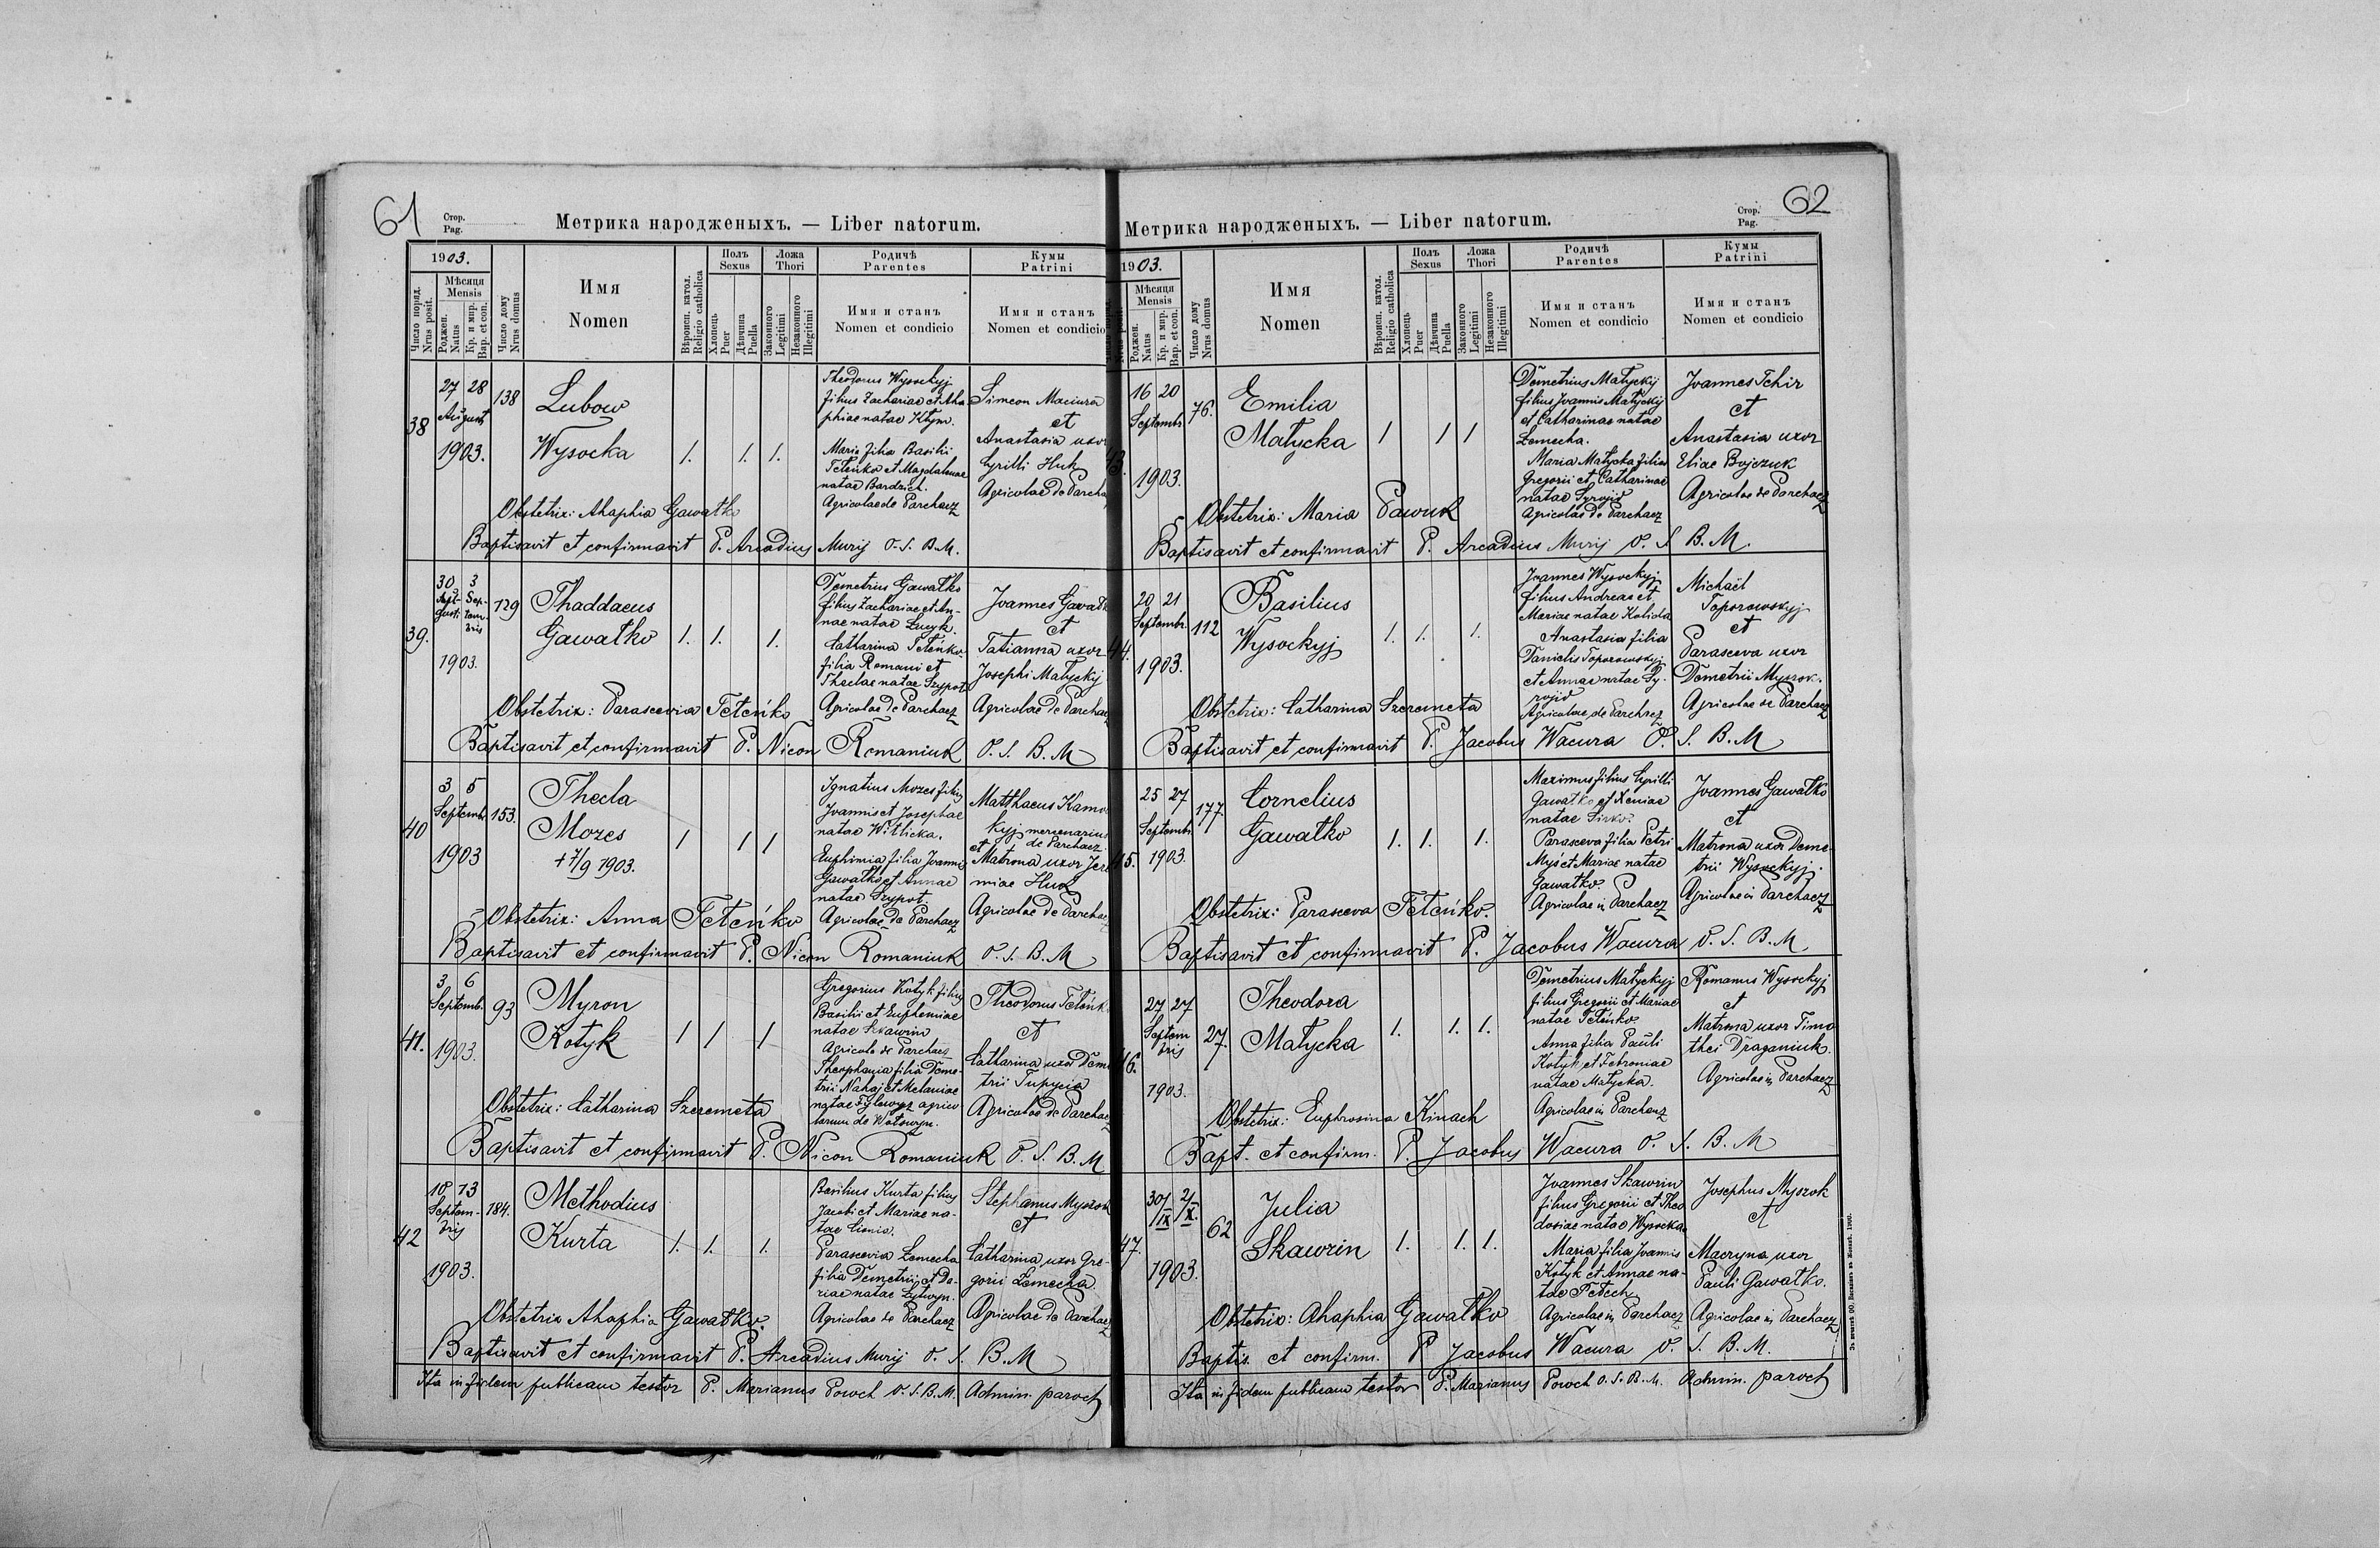 61
Стор.
Pag.
Метрика народженыхъ. — Liber natorum.
1903.
Число поряд.
Nrus posit.
Мѣсяця
Mensis
Роджен.
Natus
Кр. и мир.
Bap. et con.
Число дому
Nrus domus
Имя
Nomen
Вѣроисп. катол.
Religio catholica
Полъ
Sexus
Хлопець
Puer
Дѣвчина
Puella
Ложа
Thori
Законного
Legitimi
Незаконного
Illegitimi
Родичѣ
Parentes
Имя и станъ
Nomen et condicio
Кумы
Patrini
Имя и станъ
Nomen et condicio
38
27 28
August
1903.
138
Lubow
Wysocka
1. 1. 1.
Theodorus Wysockyj
filius Zachariae et Aha-
phiae natae Ktym.
Maria filia Basilii
Teteńko et Magdalenae
natae Bardzich.
Agricolae de Parchacz
Simeon Maciura
et
Anastasia uxor
Cyrilli Huk
Agricolae de Parcha
Obstetrix: Ahaphia Gawałko
Baptisavit et confirmavit P. Arcadius Muryj O. S. B. M.
39.
30 3
Sep-
tem-
bris
1903.
129
Thaddaeus
Gawałko
1. 1. 1.
Demetrius Gawałko
filius Zachariae et An-
nae natae Lucyk.
Catharina Teteńko
filia Romani et
Theclae natae Szypot
Agricolae de Parchacz
Joannes Gawałk
et
Tatianna uxor
Josephi Matyckyj
Agricolae de Parchacz
Obstetrix: Parascevia Teteńko
Baptisavit et confirmavit P. Nicon Romaniuk O. S. B. M
40
3 5
Septemb.
1903
153.
Thecla
Mozes
+ 7/9 1903.
1 1 1
Ignatius Mozes filius
Joannis et Josephae
natae Witlicka.
Euphimia filia Joannis
Gawałko et Annae
natae Szypot.
Agricolae de Parchacz
Matthaeus Kamo
kyj mercenarius
de Parchacz
et
Matrona uxor Jere
miae Huk
Agricolae de Parchacz
Obstetrix: Anna Teteńko
Baptisavit et confirmavit P. Nicon Romaniuk O. S. B. M
41.
3 6
Septemb.
1903.
93
Myron
Kotyk
1 1 1
Gregorius Kotyk filius
Basilii et Euphemiae
natae Skawrin
Agricola de Parchacz
Theophania filia Deme-
trii Nahaj et Melaniae
natae Tylewycz agrico
larum de Wolswyn.
Theodorus Teteńk
et
Catharina uxor Deme
trii Tupycia
Agricolae de Parchacz
Obstetrix: Catharina Szeremeta
Baptisavit et confirmavit P. Nicon Romaniuk O. S. B. M
42
10 13
Septem-
bris
1903.
184.
Methodius
Kurta
1. 1. 1.
Basilius Kurta filius
Jacobi et Mariae na-
tae
Parascevia Zemecha
filia Demetrii et Da-
riae natae Lytwyn.
Agricolae de Parchacz
Stephanus Myszok
et
Catharina uxor Gre-
gorii Zemecha.
Agricolae de Parchacz
Obstetrix Ahaphia Gawałko.
Baptisavit et confirmavit P. Arcadius Muryj O. S. B. M
Ita in fidem publicam testor P. Marianus Powch O. S. B. M. Admin. paroch
62
Стор.
Pag.
Метрика народженыхъ. — Liber natorum.
1903.
Мѣсяця
Mensis
Роджен.
Natus
Кр. и мир.
Bap. et con.
Число дому
Nrus domus
Имя
Nomen
Вѣроисп. катол.
Religio catholica
Полъ
Sexus
Хлопець
Puer
Дѣвчина
Puella
Ложа
Thori
Законного
Legitimi
Незаконного
Illegitimi
Родичѣ
Parentes
Имя и станъ
Nomen et condicio
Кумы
Patrini
Имя и станъ
Nomen et condicio
43.
16 20
Septembr.
1903.
76.
Emilia
Matycka
1 1 1
Demetrius Matyckij
filius Joannis Matyckij
et Catharinae natae
Zemecha.
Maria Matycka filia
Gregorii et Catharinae
natae Syrojid
Agricolae de Parchacz
Joannes Tchir
et
Anastasia uxor
Eliae Bojczuk
Agricolae de Parchacz
Obstetrix: Maria Pawuk
Baptisavit et confirmavit P. Arcadius Muryj O. S. B. M.
44.
20 21
Septembr.
1903.
112
Basilius
Wysockyj
1. 1. 1.
Joannes Wysockyj
filius Andreae et
Mariae natae Kolida
Anastasia filia
Danielis Toporowskyj
et Annae natae Sy-
rojid
Agricolae de Parchacz
Michaël
Toporowskyj
et
Parasceva uxor
Demetrii Myszok.
Agricolae de Parchacz
Obstetrix: Catharina Szeremeta
Baptisavit et confirmavit P. Jacobus Wacura O. S. B. M
45.
25 27
Septembr.
1903.
177.
Cornelius
Gawałko
1. 1. 1.
Maximus filius Cyrilli
Gawałko et Xeniae
natae Sirko.
Parasceva filia Petri
Myś et Mariae natae
Gawałko.
Agricolae in Parchacz
Joannes Gawałko
et
Matrona uxor Deme-
trii Wysockyj.
Agricolae in Parchacz
Obstetrix: Parasceva Teteńko.
Baptisavit et confirmavit P. Jacobus Wacura O. S. B. M
46.
27 27
Septem
bris
1903.
27.
Theodora
Matycka
1. 1. 1.
Demetrius Matyckyj
filius Gregorii et Mariae
natae Teteńko
Anna filia Pauli
Kotyk et Febroniae
natae Matycka.
Agricolae in Parchacz
Romanus Wysockyj
et
Matrona uxor Timo
thei Draganiuk.
Agricolae in Parchacz
Obstetrix: Euphrosina Kinach
Bapt. et confirm. P. Jacobus Wacura O. S. B. M
47.
30/IX 2/X.
1903.
62
Julia
Skawrin
1. 1. 1.
Joannes Skawrin
filius Gregorii et Theo
dosiae natae Wysocka
Maria filia Joannis
Kotyk et Annae na-
tae Petech
Agricolae in Parchacz
Josephus Myszok
et
Macryna uxor
Pauli Gawałko.
Agricolae in Parchacz
Obstetrix: Ahaphia Gawałko
Baptis. et confirm. P Jacobus Wacura O. S. B. M.
Ita in fidem publicam testor P. Marianus Powch O. S. B. M. Admin. paroch